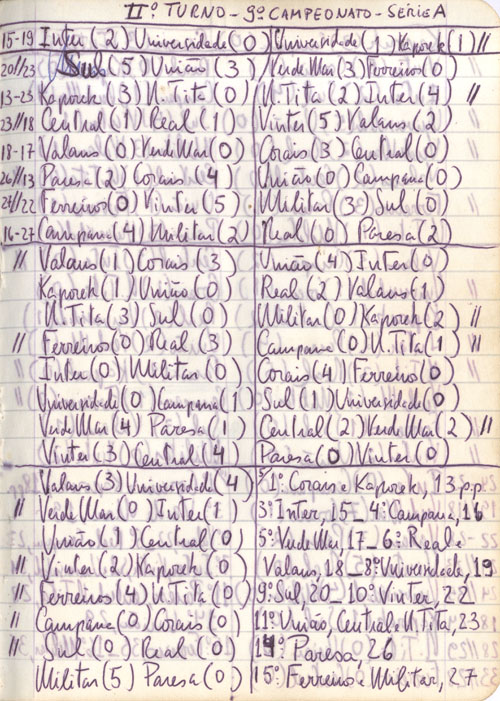 IIº TURNO - 9º CAMPEONATO - SÉRIE A
15-19 Inter (2) Universidade (0) Universidade (1) Kaporek (1) //
20//23 Sul (5) União (3) Verde Mar (3) Ferreiros (0)
13-23 Kaporek (3) U. Tita (0) U. Tita (2) Inter (4) //
23//18 Central (1) Real (1) Vinter (5) Valans (2)
18-17 Valans (0) Verde Mar (0) Corais (3) Central (0)
26//13 Paresa (2) Corais (4) União (0) Campana (0)
27//22 Ferreiros (0) Vinter (5) Militar (3) Sul (0)
16-27 Campana (4) Militar (2) Real (0) Paresa (2)
// Valans (1) Corais (3) União (4) Inter (0)
Kaporek (1) União (0) Real (2) Valans (1)
U. Tita (3) Sul (0) Militar (0) Kaporek (2) //
// Ferreiros (0) Real (3) Campana (0) U. Tita (1) //
// Inter (0) Militar (0) Corais (4) Ferreiro (0)
// Universidade (0) Campana (1) Sul (1) Universidade (0)
Verde Mar (4) Paresa (1) Central (2) Verde Mar (2) //
Vinter (3) Central (4) Paresa (0) Vinter (0)
Valans (3) Universidade (4) 1º: Corais e Kaporek, 13 p.p
// Verde Mar (0) Inter (1) 3º Inter, 15 _ 4º: Campana, 16
União (1) Central (0) 5º: Verde Mar, 17 _ 6º: Real e
// Vinter (2) Kaporek (0) Valans, 18 _ 8º: Universidade, 19
// Ferreiros (4) U. Tita (0) 9º: Sul, 20 _ 10º: Vinter, 22
// Campana (0) Corais (0) 11º: União, Central e U. Tita, 23
// Sul (0) Real (0) 14º: Paresa, 26
Militar (5) Paresa (0) 15º: Ferreiro e Militar, 27